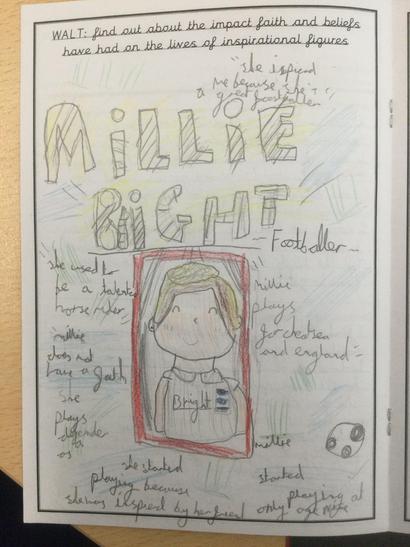 WALT: find out about the impact faith and beliefs
have had on the lives of inspirational figures
"she inspierd
me because she is
a great footballer"
MiLLiE
BRIGHT
- Footballer -
she used to
be a talented
horse rider
millie
does not
have a faith
she
plays
defender
millie
plays
for chelsea
and england
Bright
she started
playing because
she was inspierd by her freind
millie
started
playing at
only age nine